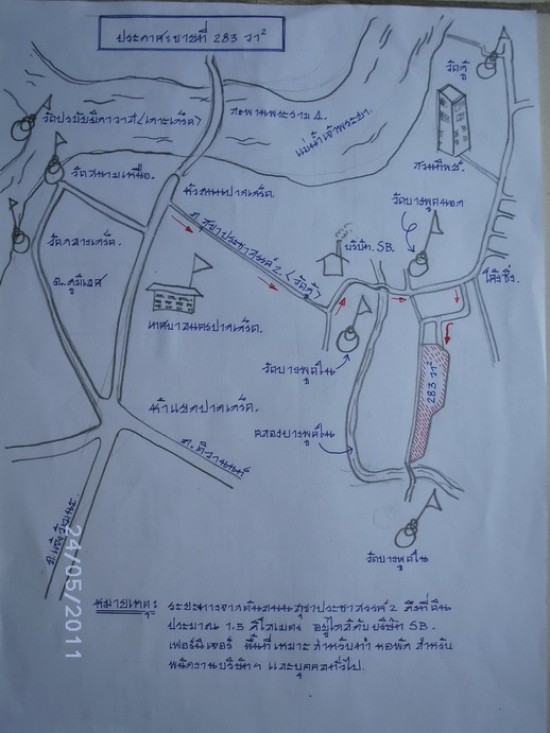 ประกาศขายที่ 283 วา²
วัดกู้
สะพานพระราม 4
แม่น้ำเจ้าพระยา
วัดปรมัยยิกาวาส (เกาะเกร็ด)
วัดสนามเหนือ
หัวถนนปากเกร็ด
วัดบางพูดนอก
วัดกลางเกร็ด
ถ.สุขาประชาสรรค์ 2 (วัดกู้)
บริษัท SB.
โค้งซิ่ง
ถ.ภูมิเวท
เทศบาลนครปากเกร็ด
วัดบางพูดใน
283 วา²
ห้าแยกปากเกร็ด
คลองบางพูดใน
ถ.ติวานนท์
วัดบางพูดใน
24/05/2011
หมายเหตุ: ระยะทางจากต้นถนนสุขาประชาสรรค์ 2 ถึงที่ดิน
ประมาณ 1.5 กิโลเมตร อยู่ใกล้กับบริษัท SB.
เฟอร์นิเจอร์ พื้นที่เหมาะสำหรับทำ หอพัก สำหรับ
พนักงานบริษัทฯ และบุคคลทั่วไป.